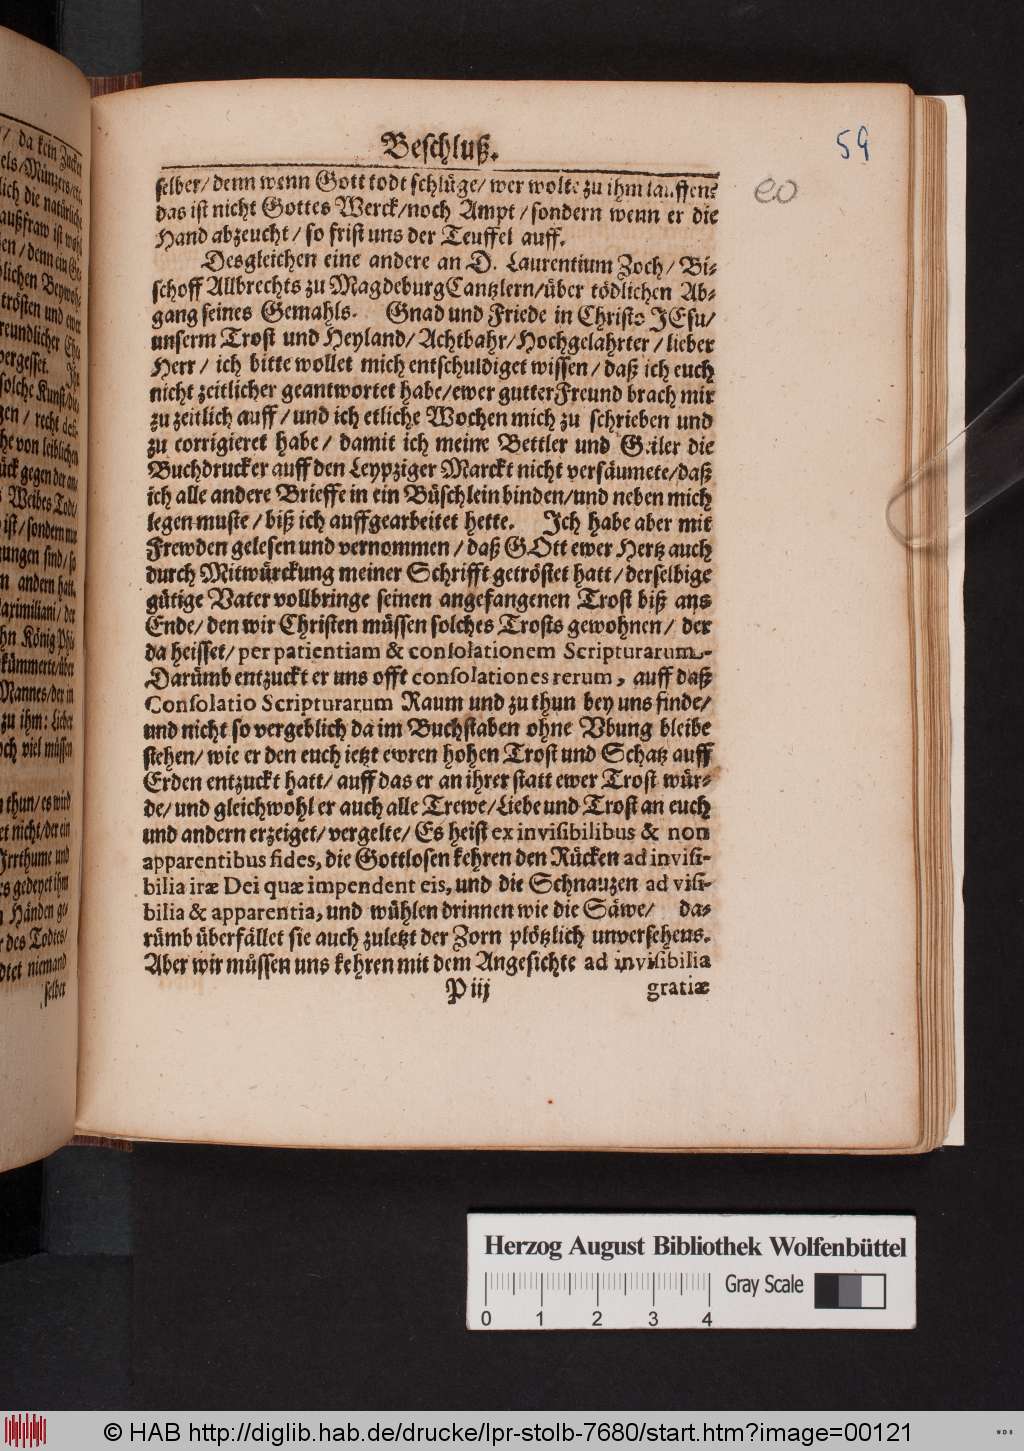 Beschluß.
59
selber/ denn wenn Gott todt schlüge/ wer wolte zu ihm lauffen?
das ist nicht Gottes Werck/noch Ampt/ sondern wenn er die
Hand abzeucht/ so frist uns der Teuffel auff.
Desgleichen eine andere an D. Laurentium Zoch/ Bi-
schoff Allbrechts zu Magdeburg Cantzlern/über tödlichen Ab-
gang seines Gemahls. Gnad und Friede in Christo JEsu/
unserm Trost und Heyland/ Achtbahr/Hochgelahrter/ lieber
Herr/ ich bitte wollet mich entschuldiget wissen/ daß ich euch
nicht zeitlicher geantwortet habe/ewer gutter Freund brach mir
zu zeitlich auff/ und ich etliche Wochen mich zu schrieben und
zu corrigieret habe/ damit ich meine Bettler und Geiler die
Buchdrucker auff den Leypziger Marckt nicht versäumete/daß
ich alle andere Brieffe in ein Büschlein binden/und neben mich
legen muste/ biß ich auffgearbeitet hette. Ich habe aber mit
Frewden gelesen und vernommen/ daß GOtt ewer Hertz auch
durch Mitwürckung meiner Schrifft getröstet hatt/ derselbige
gütige Vater vollbringe seinen angefangenen Trost biß ans
Ende/ den wir Christen müssen solches Trosts gewohnen/ der
da heisset/ per patientiam & consolationem Scripturarum.
Darümb entzuckt er uns offt consolationes rerum, auff daß
Consolatio Scripturarum Raum und zu thun bey uns finde/
und nicht so vergeblich da im Buchstaben ohne Vbung bleibe
stehen/ wie er den euch jetzt ewren hohen Trost und Schatz auff
Erden entzuckt hatt/ auff das er an ihrer statt ewer Trost wür-
de/ und gleichwohl er auch alle Trewe/Liebe und Trost an euch
und andern erzeiget/ vergelte/ Es heist ex invisibilibus & non
apparentibus fides, die Gottlosen kehren den Rücken ad invisi-
bilia iræ Dei quæ impendent eis, und die Schnauzen ad visi-
bilia & apparentia, und wühlen drinnen wie die Säwe/ da-
rümb überfället sie auch zuletzt der Zorn plötzlich unversehens.
Aber wir müssen uns kehren mit dem Angesichte ad invisibilia
P iij gratiæ
Herzog August Bibliothek Wolfenbüttel
Gray Scale
0 1 2 3 4
© HAB http://diglib.hab.de/drucke/lpr-stolb-7680/start.htm?image=00121